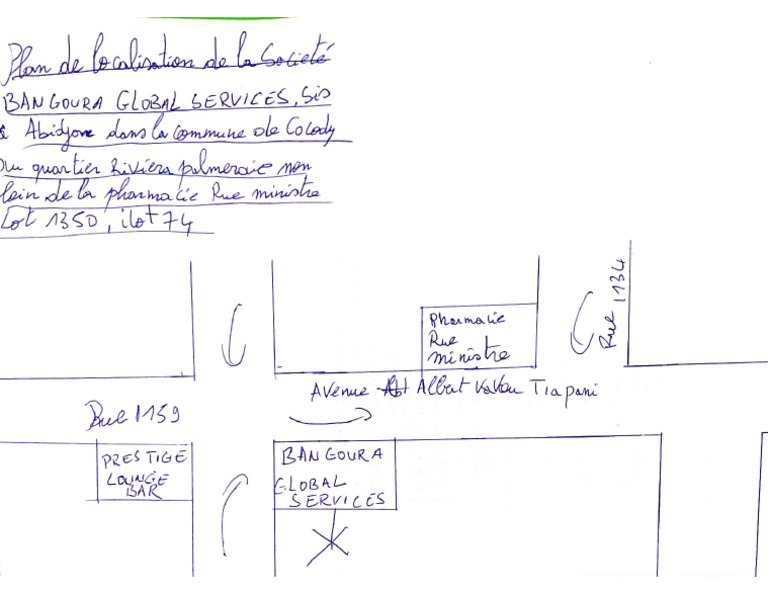 Plan de localisation de la Societé
BANGOURA GLOBAL SERVICES, Sis
à Abidjan dans la commune de Cocody
au quartier Riviera palmeraie non
loin de la pharmacie Rue ministre
Lot 1350, ilot 74
Rue 1134
Pharmacie
Rue
ministre
Avenue Albert Vavou Tiapani
Rue 1159
PRESTIGE
LOUNGE
BAR
BANGOURA
GLOBAL
SERVICES